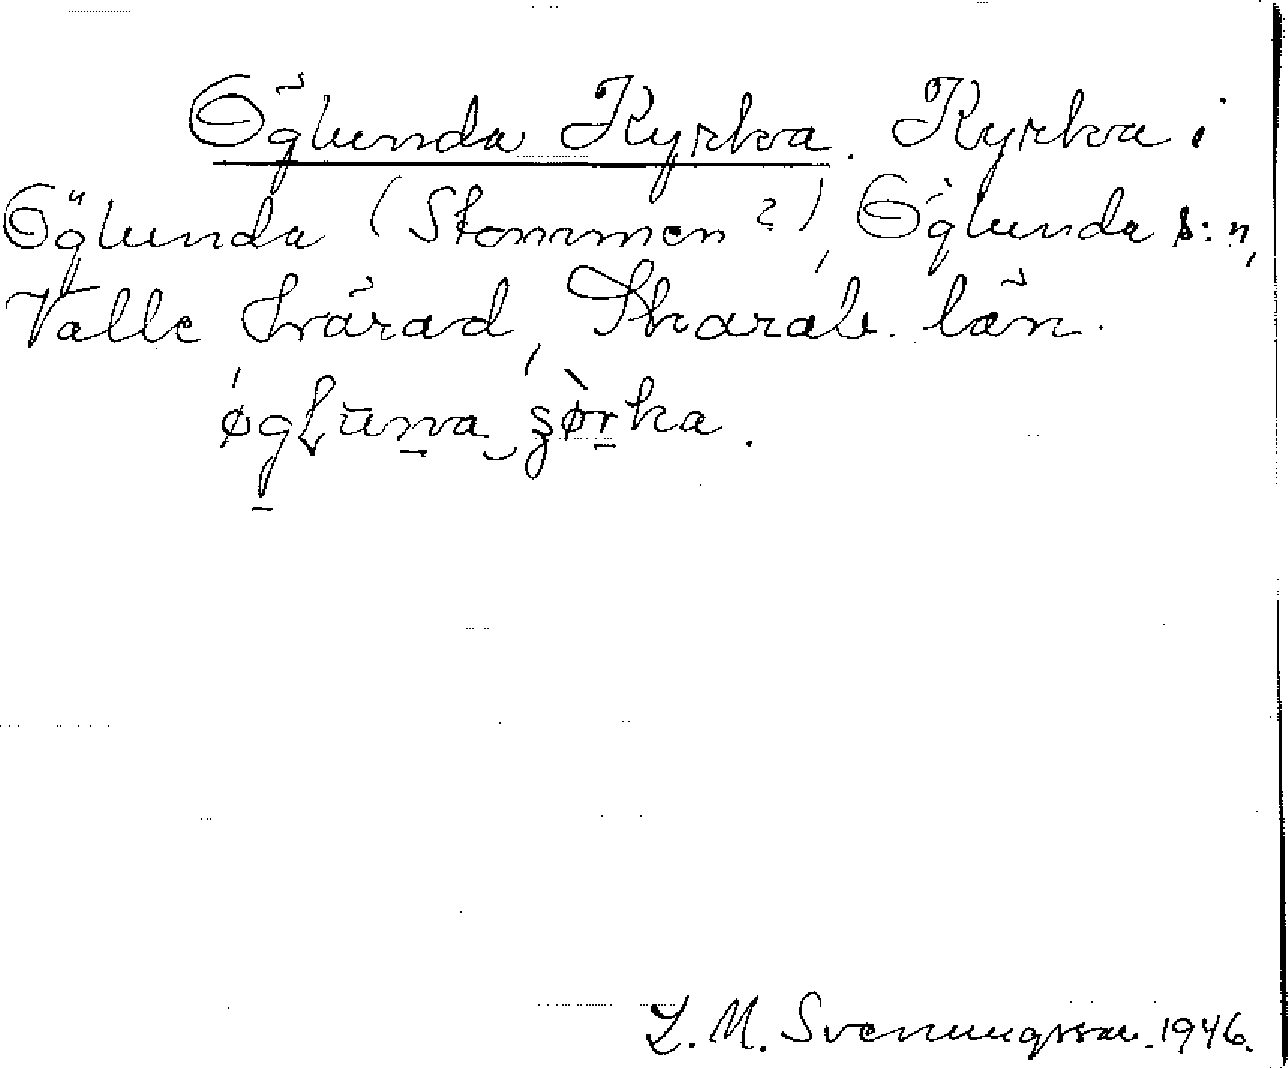 Öglunda Kyrka. Kyrka i
Öglunda (Stommen?), Öglunda s:n,
Valle härad, Skarab. län.
øgLuna ʂørka.
L. M. Svenungsson. 1946.